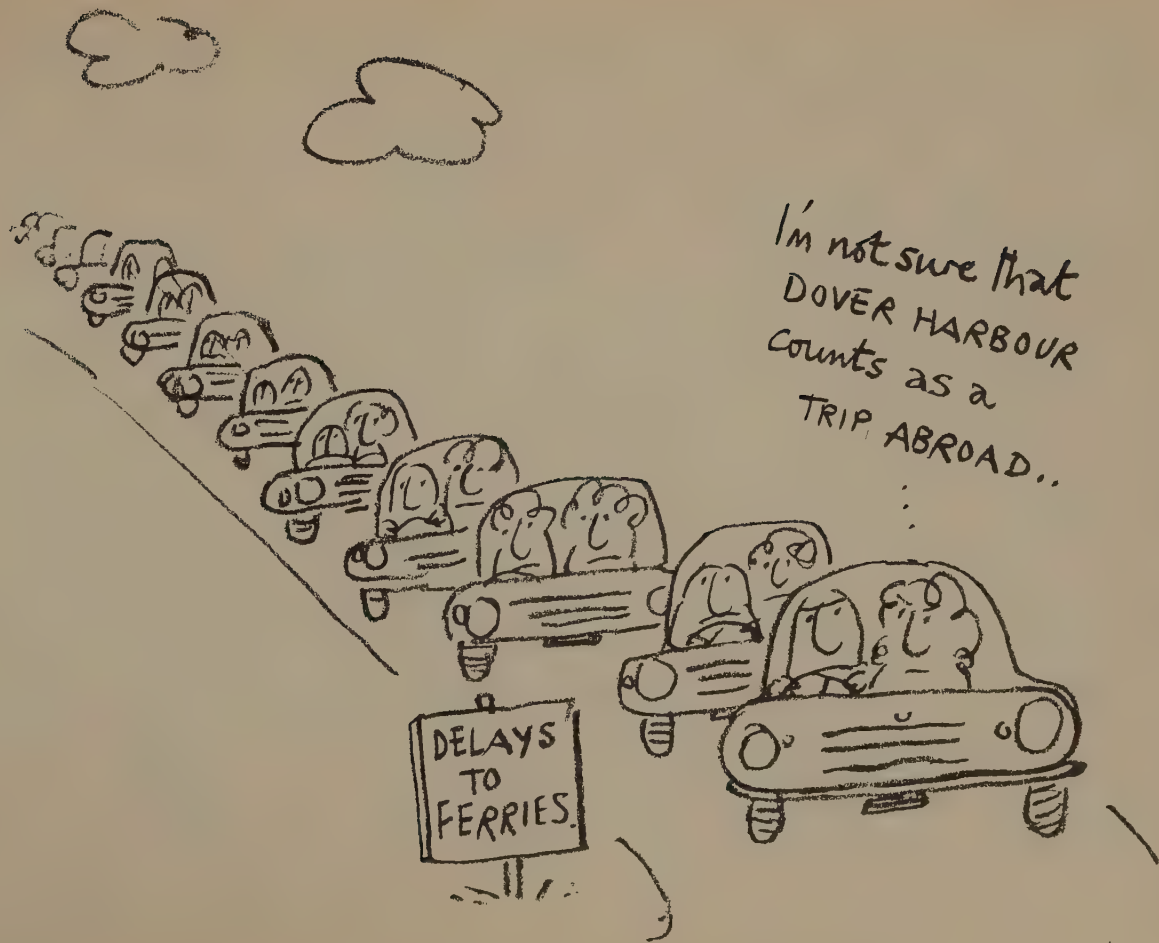 I'm not sure that
DOVER HARBOUR
counts as a
TRIP ABROAD..
DELAYS
TO
FERRIES.